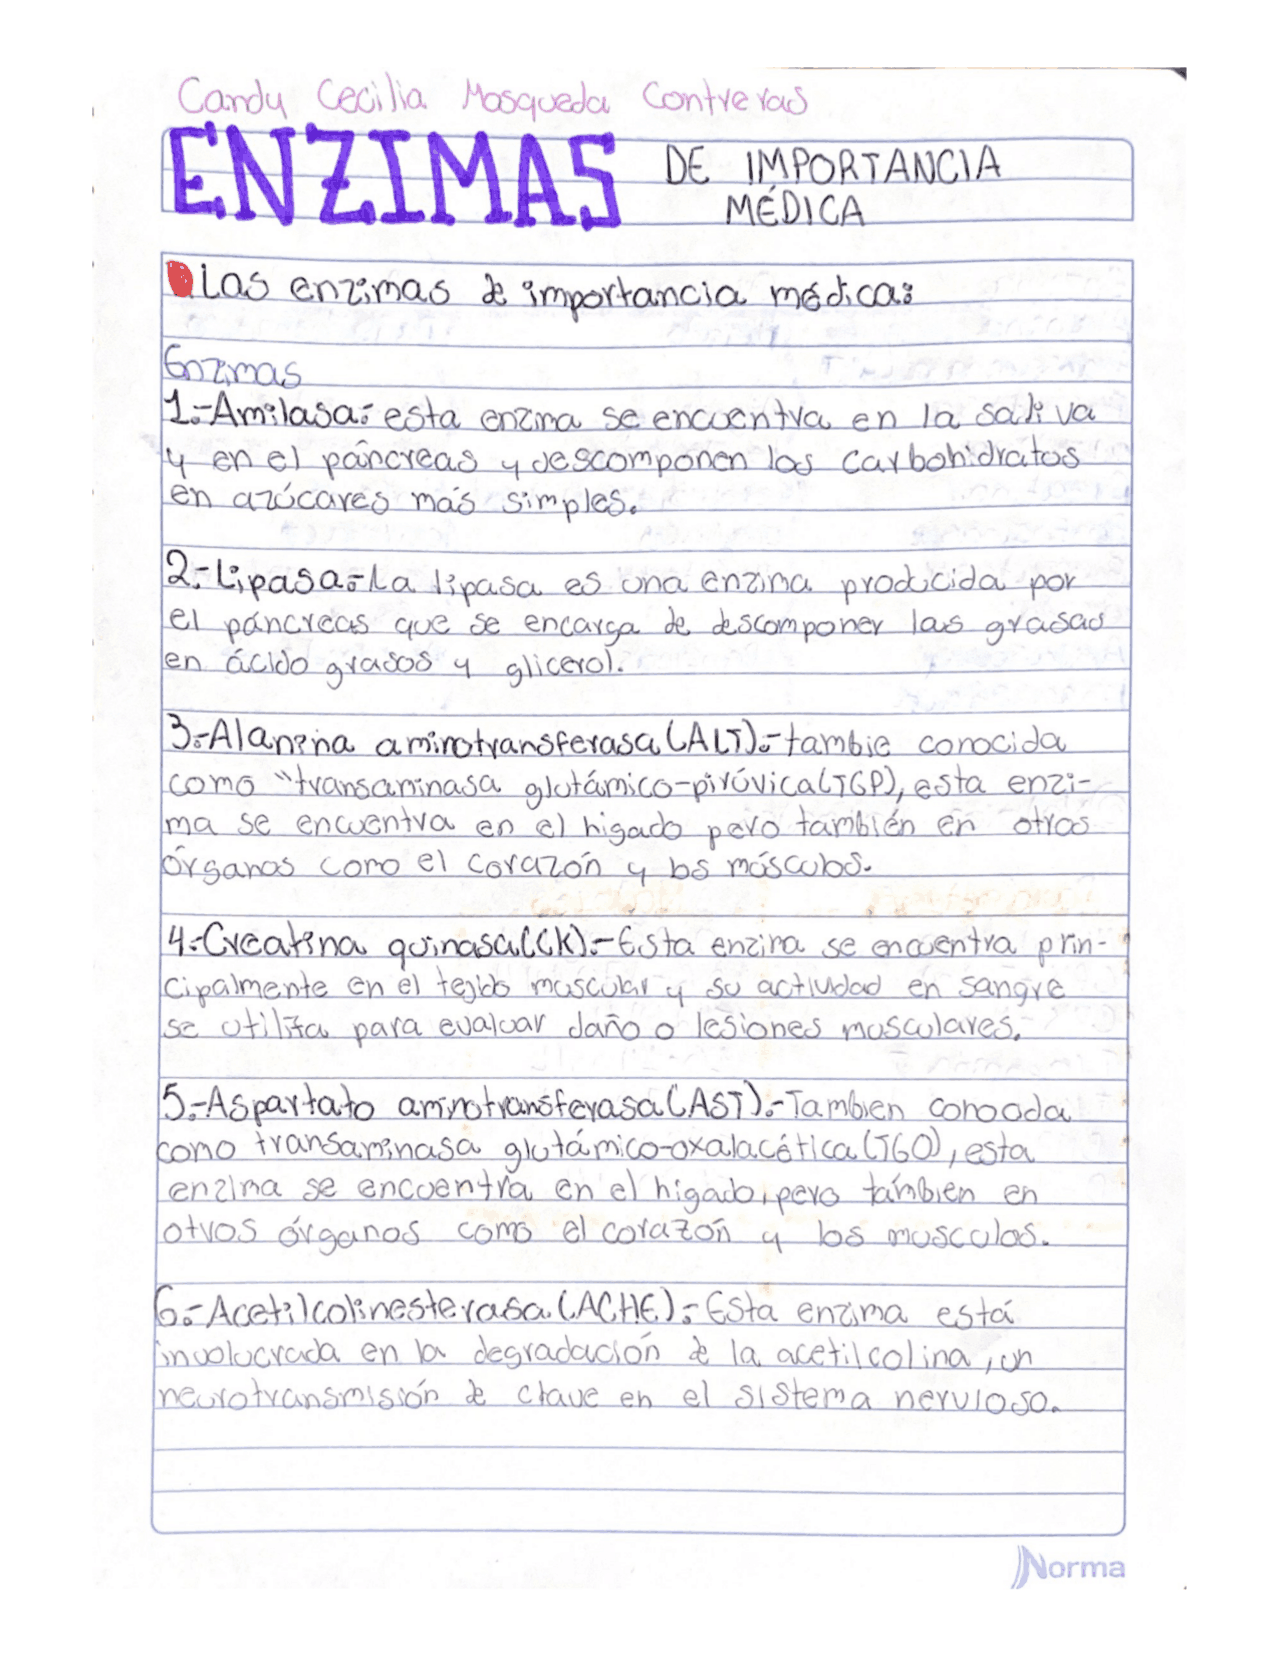 Candy Cecilia Mosqueda Contreras
ENZIMAS DE IMPORTANCIA
MÉDICA
Las enzimas de importancia médica:
Enzimas
1.-Amilasa: esta enzima se encuentra en la saliva
y en el páncreas y descomponen los carbohidratos
en azúcares más simples.
2.-Lipasa.-La lipasa es una enzima producida por
el páncreas que se encarga de descomponer las grasas
en ácido grasos y glicerol.
3.-Alanina aminotransferasa (ALT).-tambie conocida
como "transaminasa glutámico-pirúvica(TGP), esta enzi-
ma se encuentra en el higado pero también en otros
órganos como el corazón y los músculos.
4.-Creatina quinasa(CK).-Esta enzima se encuentra prin-
cipalmente en el tejido muscular y su actividad en sangre
se utiliza para evaluar daño o lesiones musculares.
5.-Aspartato aminotransferasa(AST).-Tambien conocida
como transaminasa glutámico-oxalacética(TGO), esta
enzima se encuentra en el higado, pero también en
otros órganos como el corazón y los musculos.
6.-Acetilcolinesterasa (ACHE).-Esta enzima está
involucrada en la degradación de la acetilcolina, un
neurotransmisión de clave en el sistema nervioso.
Norma